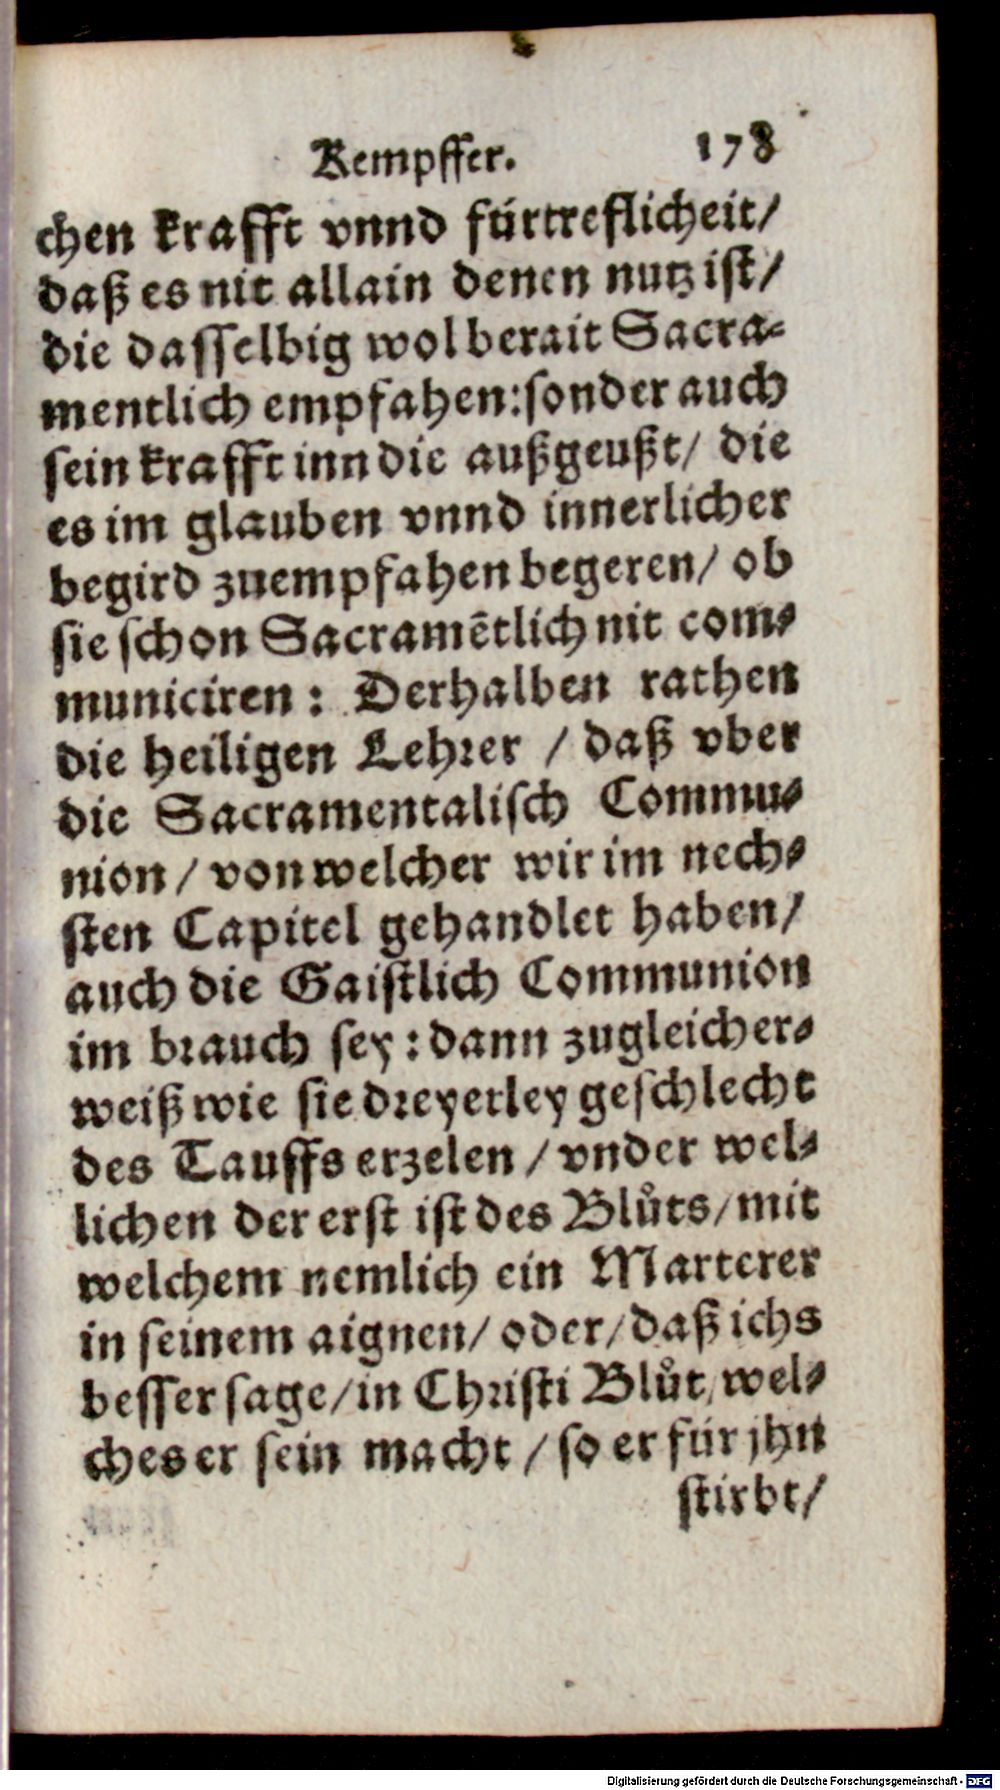 Kempffer. 178
chen krafft vnnd fürtreflicheit/
daß es nit allain denen nutz ist/
die dasselbig wol berait Sacra-
mentlich empfahen: sonder auch
sein krafft inn die außgeußt/ die
es im glauben vnnd innerlicher
begird zuempfahen begeren/ ob
sie schon Sacramētlich nit com-
municiren: Derhalben rathen
die heiligen Lehrer / daß vber
die Sacramentalisch Commu-
nion / von welcher wir im nech-
sten Capitel gehandlet haben/
auch die Gaistlich Communion
im brauch sey: dann zugleicher-
weiß wie sie dreyerley geschlecht
des Tauffs erzelen / vnder wel-
lichen der erst ist des Blůts/ mit
welchem nemlich ein Marterer
in seinem aignen/ oder/ daß ichs
besser sage/ in Christi Blůt/ wel-
ches er sein macht / so er für jhn
stirbt/
Digitalisierung gefördert durch die Deutsche Forschungsgemeinschaft - DFG